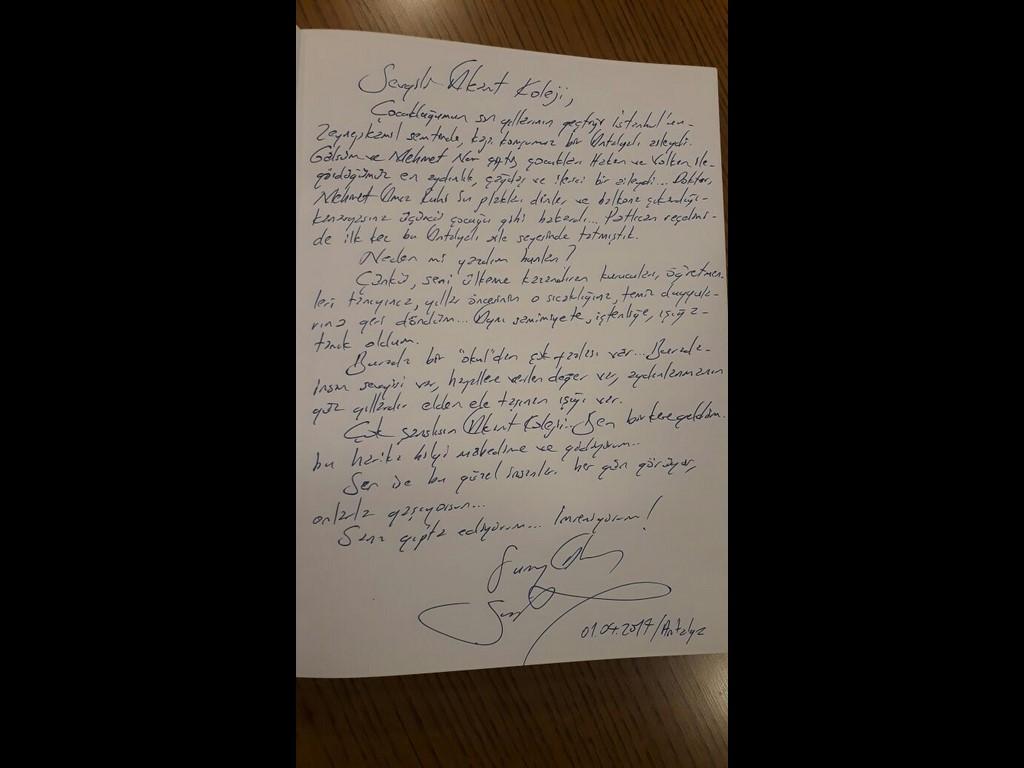 Sevgili Akant Koleji,
Çocukluğumun son yıllarının geçtiği İstanbul'un
Zeynepkamil semtinde, kapı komşumuz bir Antalyalı aileydi.
Gülsüm ve Mehmet Nur çocukları Hakan ve Volkan ile
gördüğümüz en aydınlık, çağdaş ve ilerici bir aileydi... Doktor,
Mehmet Amca Ruhi Su plakları dinler ve balkona çıkardığı
kanaryasına üçüncü çocuğu gibi bakardı... Patlıcan reçelini
de ilk kez bu Antalyalı aile sayesinde tatmıştık.
Neden mi yazdım bunları?
Çünkü, seni ülkeme kazandıran kurucuları, öğretmen-
leri tanıyınca, yıllar öncesinin o sıcaklığına, temiz duygula-
rına geri döndüm... Aynı samimiyete, içtenliğe, ışığa
tanık oldum.
Burada bir "okul"dan çok fazlası var... Burada
insan sevgisi var, hayallere verilen değer var, aydınlanmanın
yüz yıllardır elden ele taşınan ışığı var.
Çok şanslısın Akant Koleji.. Ben bir kere geldim
bu harika bilgi mabedine ve gidiyorum..
Sen ise bu güzel insanları her gün görüyor,
onlarla yaşıyorsun...
Sana gıpta ediyorum... İmreniyorum!
Sunay
01.04.2017/Antalya